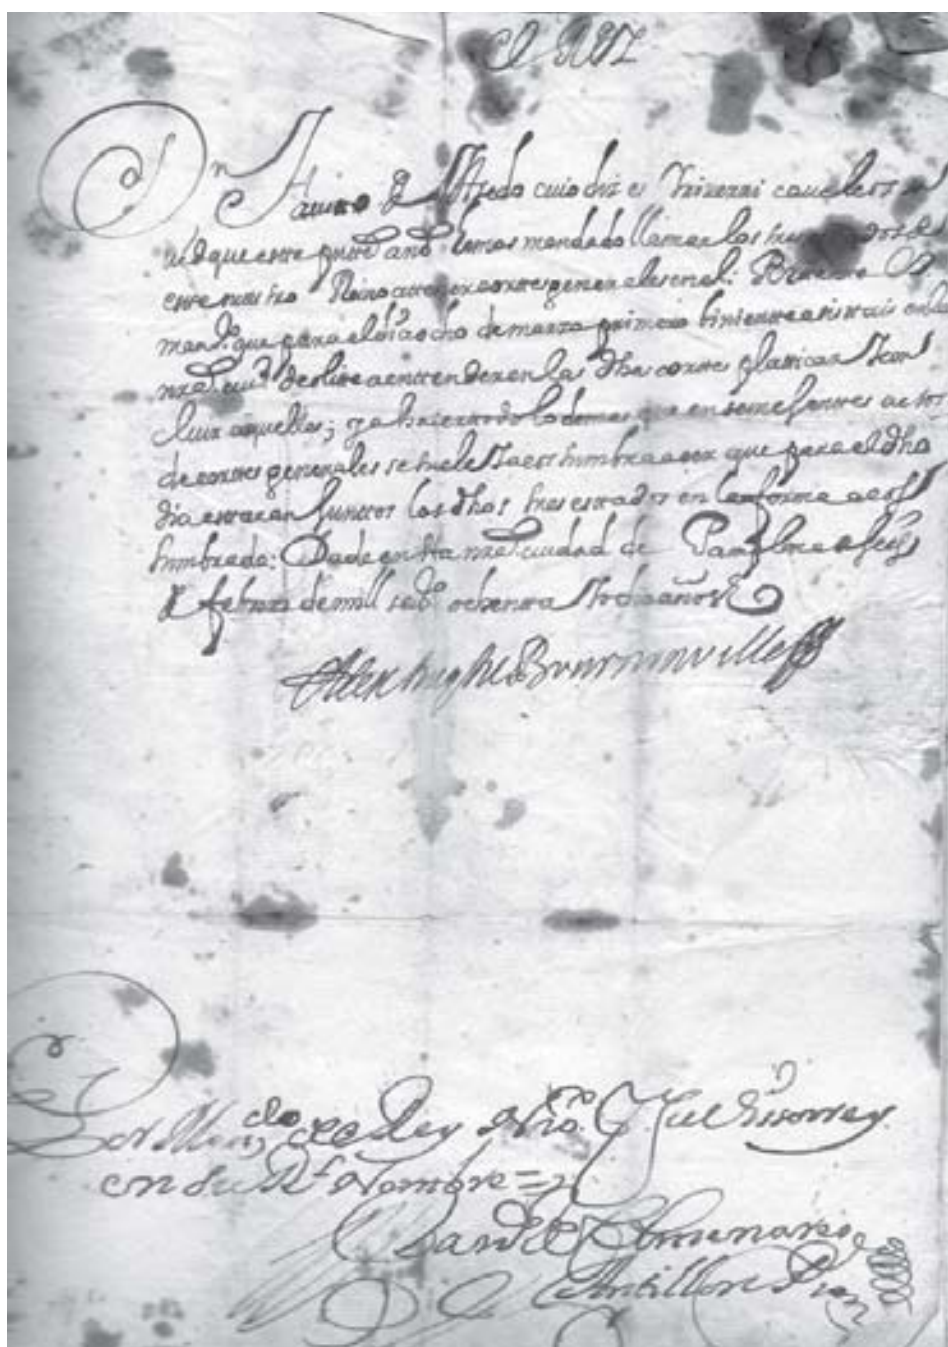 El REY
Dn Jauier de Azedo cuio diz es Yriuerri caueless
ued que este prete año hemos mandado llamar los tres estados de
este nuestro Reino a tener cortes generales en el:
mando que para el dia ocho de marzo primero biniente asistais en la
nra ciud de olite a entender en las dhas cortes platicar y con
cluir aquellas; y a biniendo lo demas que en semejantes actos
de cortes generales se suele y acostumbra acer que para el dho
dia estaran juntos los dhos tres estados en la forma acos
tumbrada: Dada en la nra ciudad de Pamplona a seis
de febrero de mill seisos ochenta y ocho años
Alex Bournonville
Por Mando del Rey Nro. Su Visorrey
en su Rl Nombre =
Almenarez
Antillon Srio